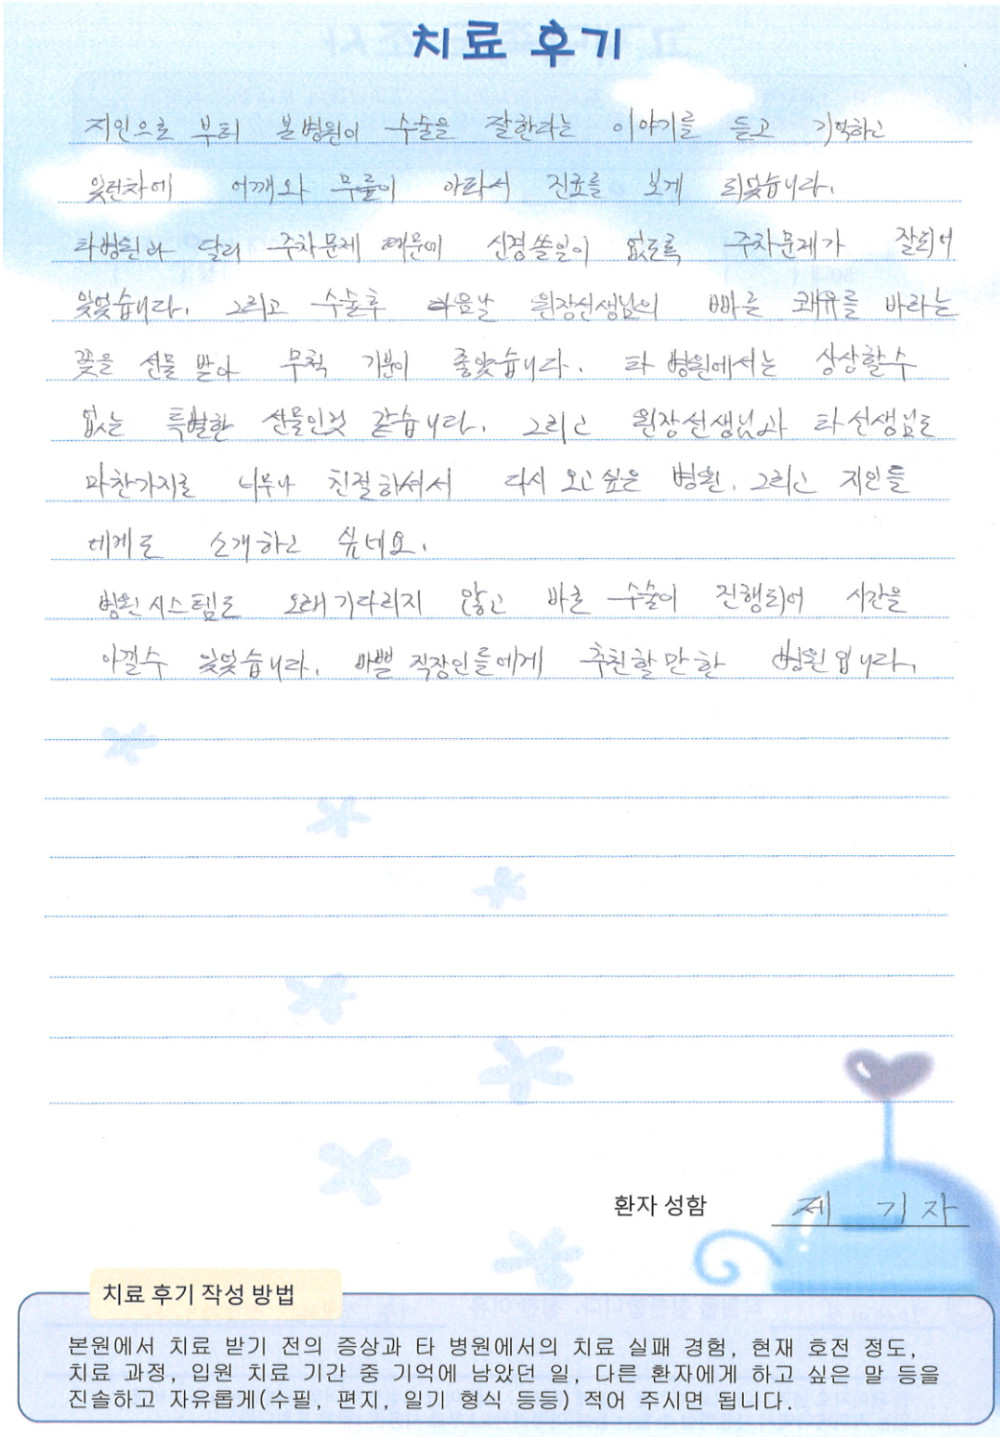 치료 후기
지인으로 부터 본병원이 수술을 잘한다는 이야기를 듣고 기억하고
있던차에 어깨와 무릎이 아파서 진료를 보게 되었습니다.
타병원과 달리 주차문제 때문에 신경쓸일이 없도록 주차문제가 잘되어
있었습니다. 그리고 수술후 다음날 원장선생님의 빠른 쾌유를 바라는
꽃을 선물 받아 무척 기분이 좋았습니다. 타 병원에서는 상상할수
없는 특별한 선물인것 같습니다. 그리고 원장선생님과 타선생님도
마찬가지로 너무나 친절하셔서 다시 오고싶은 병원. 그리고 지인들
에게도 소개하고 싶네요.
병원시스템도 오래기다리지 않고 바로 수술이 진행되어 시간을
아낄수 있었습니다. 바쁠 직장인들에게 추천할만한 병원입니다.
환자 성함 제 기자
치료 후기 작성 방법
본원에서 치료 받기 전의 증상과 타 병원에서의 치료 실패 경험, 현재 호전 정도,
치료 과정, 입원 치료 기간 중 기억에 남았던 일, 다른 환자에게 하고 싶은 말 등을
진솔하고 자유롭게(수필, 편지, 일기 형식 등등) 적어 주시면 됩니다.